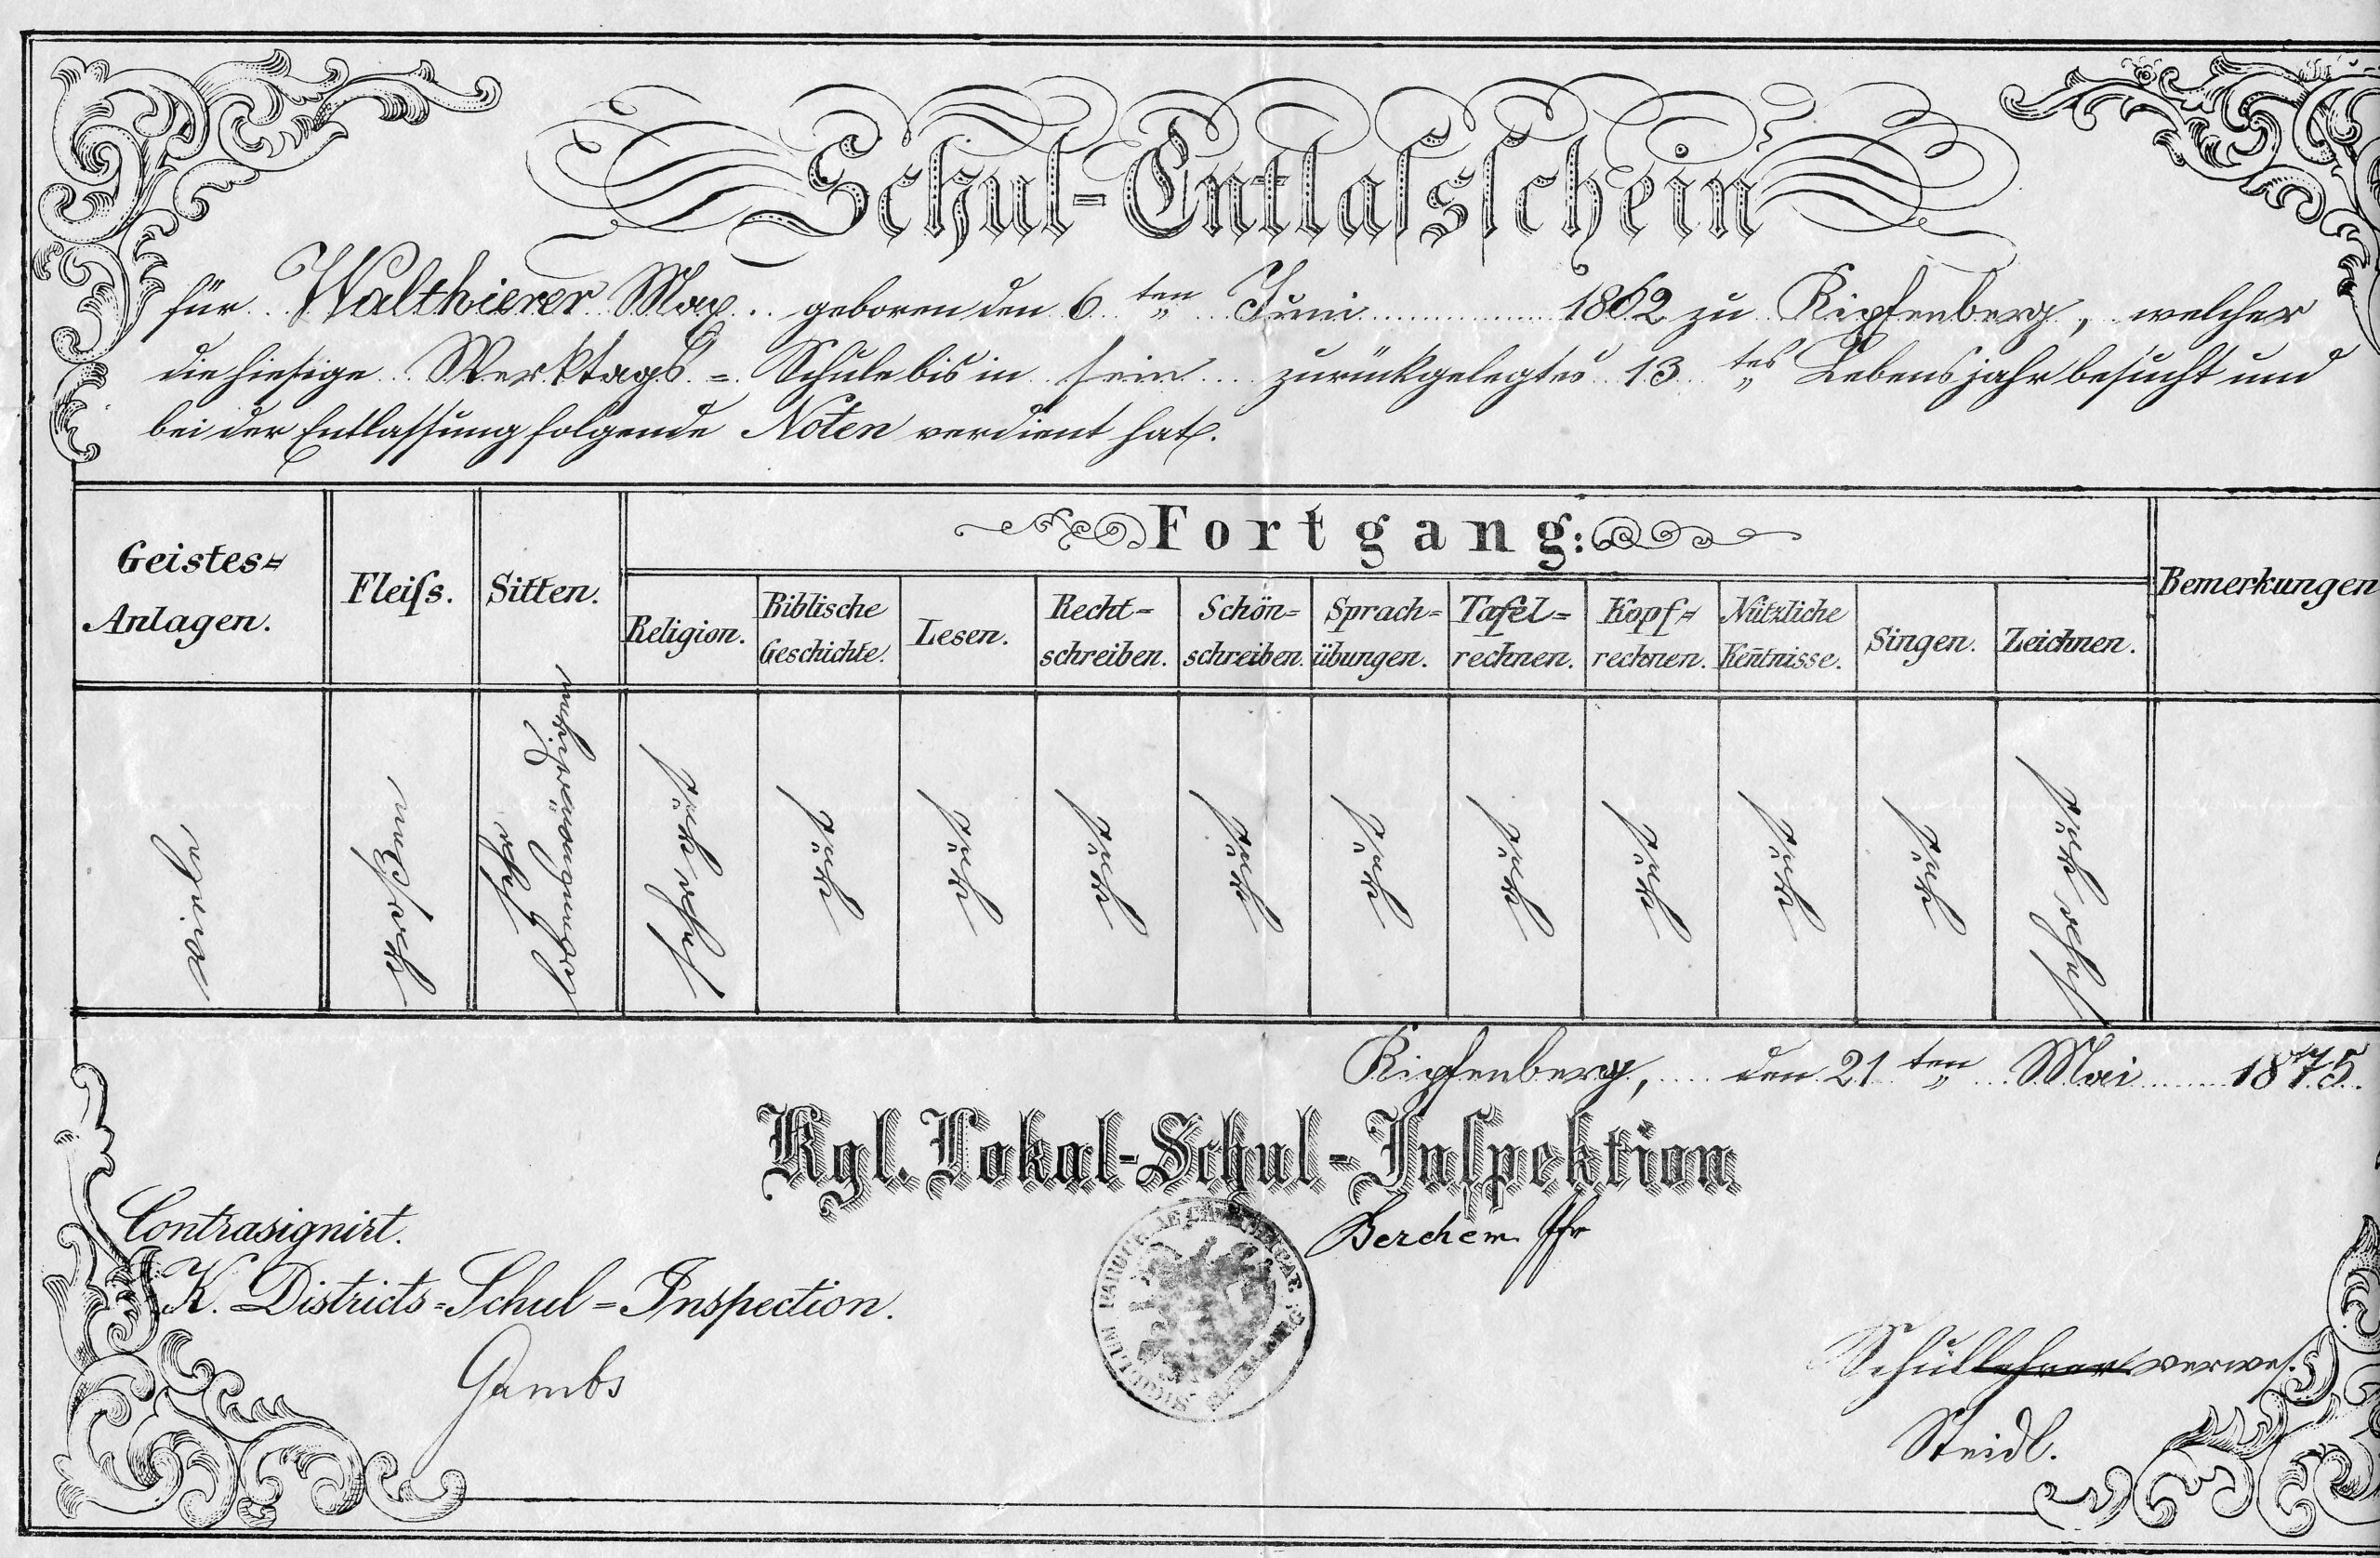 Schul-Entlaſsſchein
für Walthierer Max geboren den 6ten Juni 1862 zu Kipfenberg, welcher
die hiesige Werktags=Schule bis in sein zurückgelegtes 13tes Lebensjahr besucht und
bei der Entlassung folgende Noten verdient hat.
Fortgang:
Geistes=
Anlagen.
Fleiſs.
Sitten.
Religion.
Biblische
Geschichte.
Lesen.
Recht=
schreiben.
Schön=
schreiben.
Sprach=
übungen.
Tafel=
rechnen.
Kopf=
rechnen.
Nützliche
Keñtnisse.
Singen.
Zeichnen.
Bemerkungen
viele
sehr
lobenswürdig
sehr gut
gut
gut
gut
gut
gut
gut
gut
gut
gut
sehr gut
Kipfenberg, den 21ten Mai 1875.
Kgl. Lokal-Schul-Inſpektion
Berchem Pfr
Contrasignirt.
K. Districts=Schul=Inspection.
Gambs
Schullehrer verwes.
Steidl.